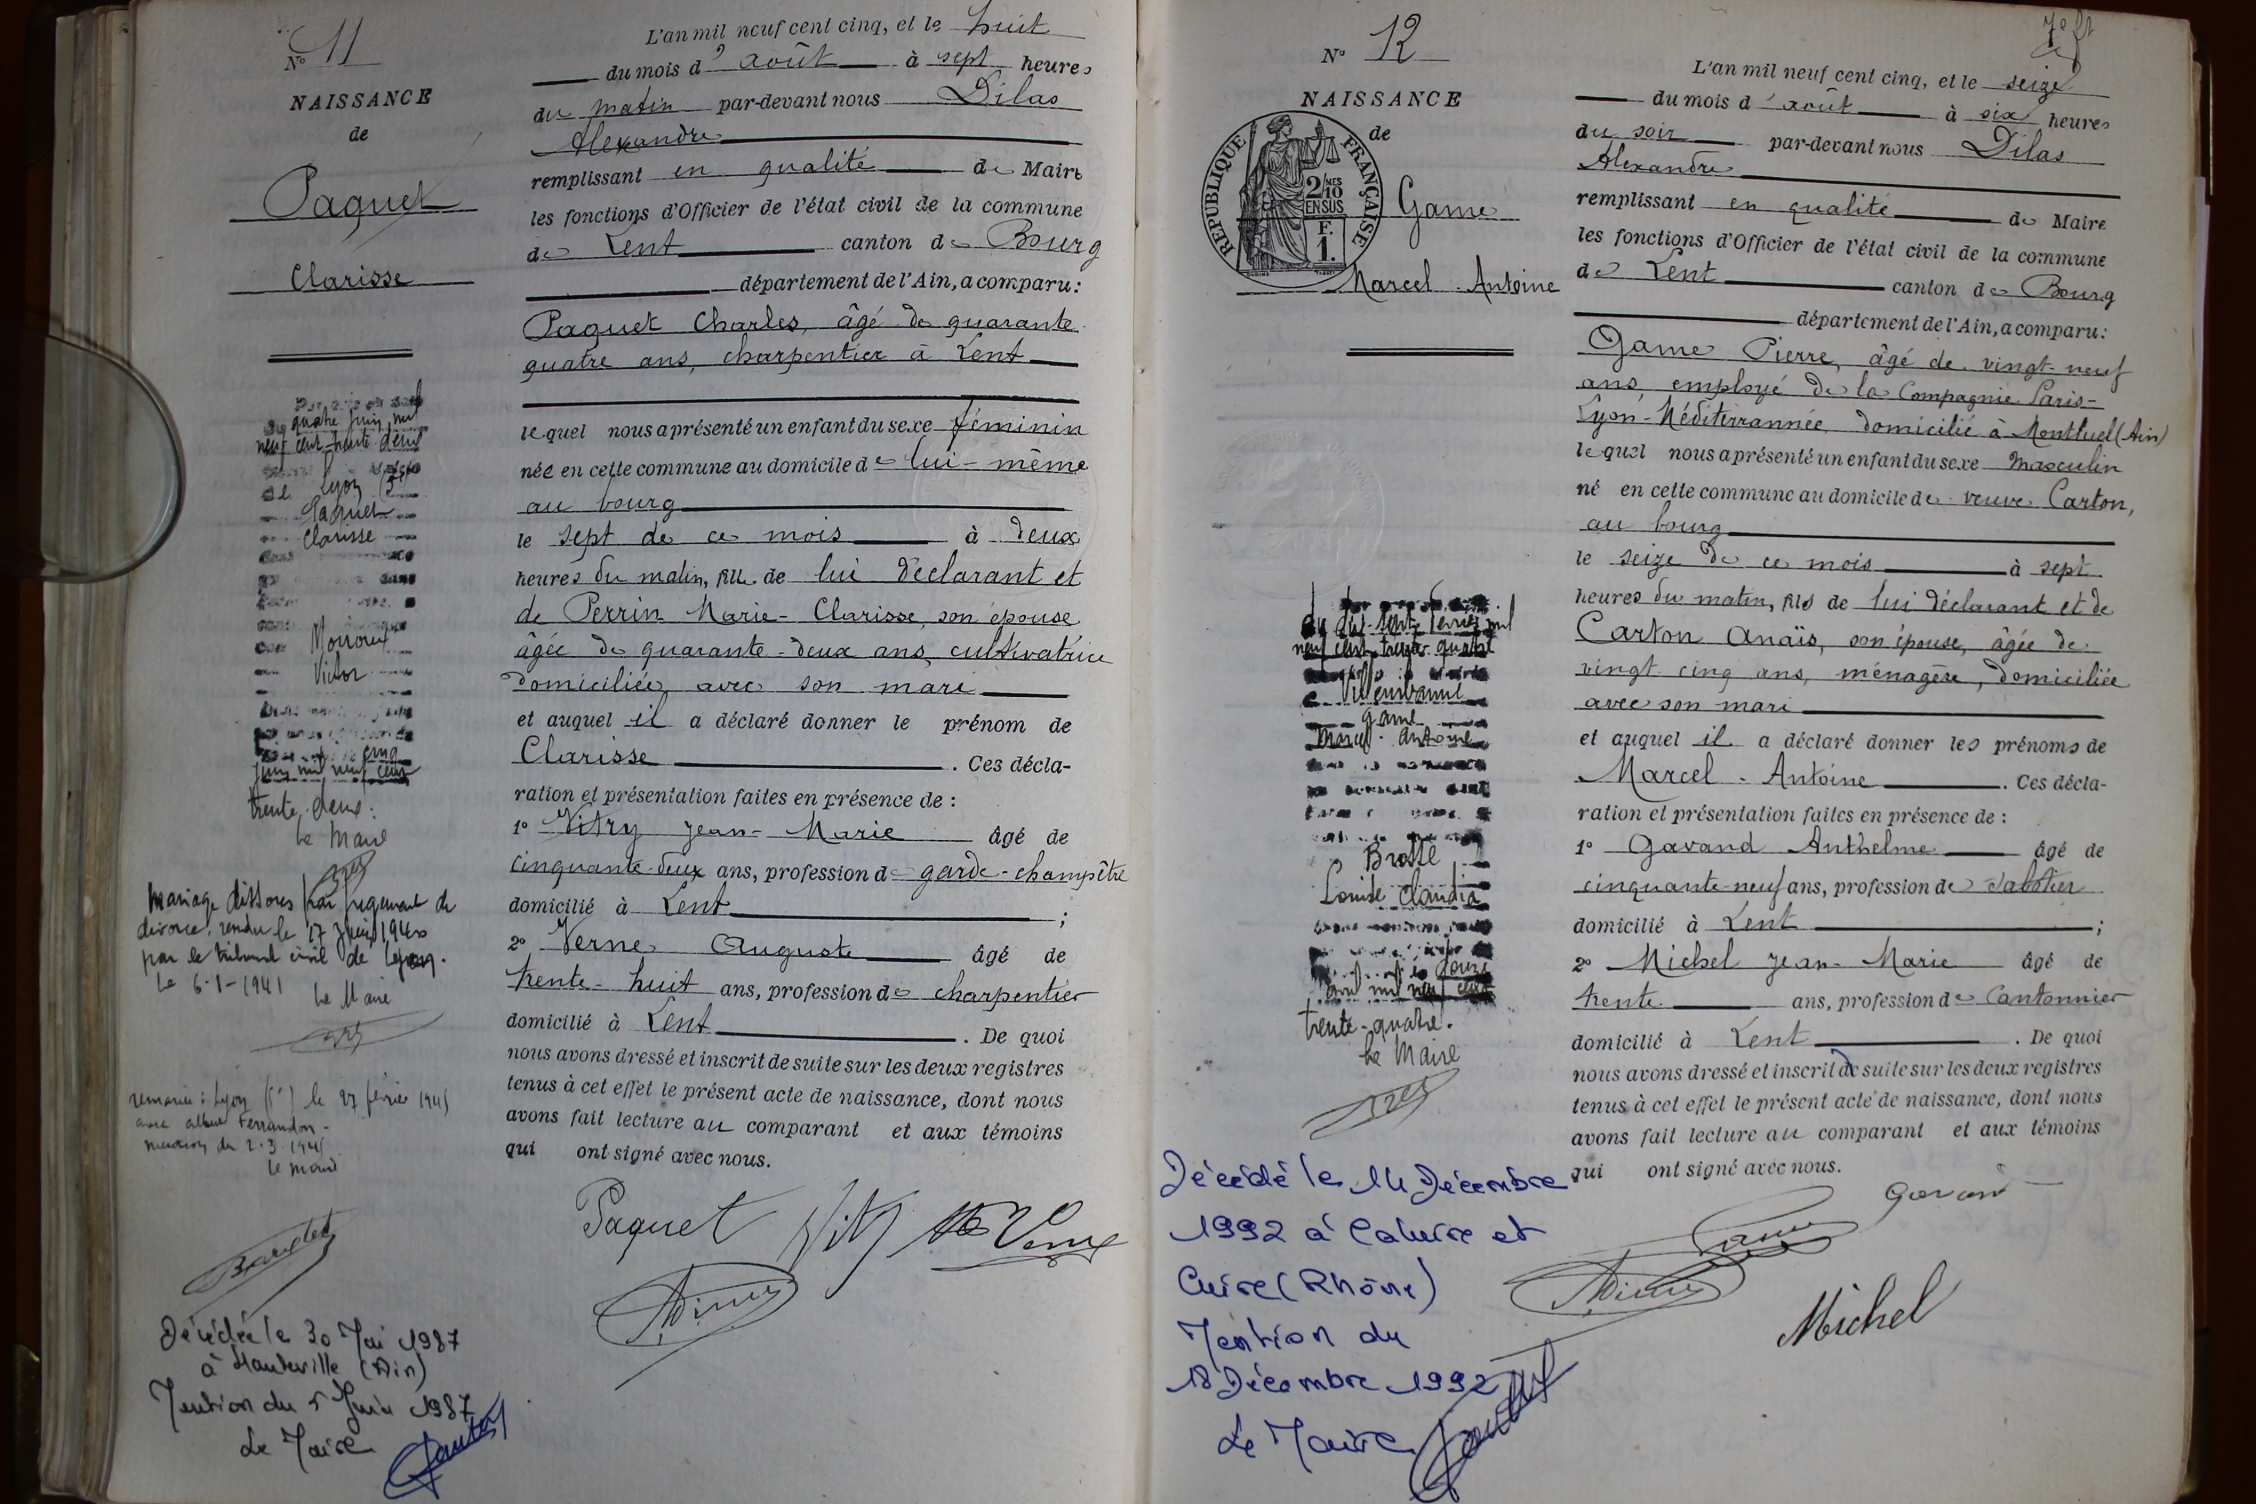 Nº 11
NAISSANCE
de
Paquet
Clarisse
quatre juin mil
neuf cent trente deux
Lyon (5e)
Paquet
Clarisse
Monroux
Victor
cinq
juin mil neuf cent
trente deux.
Le Maire
Mariage dissous par jugement de
divorce rendu le 27 juin 1940
par le tribunal civil de Lyon.
Le 6-1-1941
Le Maire
remariée : Lyon le 27 février 1945
avec Albert Ferrandon -
mention du 2.3.1945
Le Maire
Décédée le 30 Mai 1987
à Hauteville (Ain)
Mention du 5 Juin 1987
Le Maire
L'an mil neuf cent cinq, et le huit
du mois d'août à sept heures
du matin par-devant nous Dilas
Alexandre
remplissant en qualité de Maire
les fonctions d'Officier de l'état civil de la commune
de Lent canton de Bourg
département de l'Ain, a comparu :
Paquet Charles, âgé de quarante
quatre ans, charpentier à Lent
lequel nous a présenté un enfant du sexe féminin
née en cette commune au domicile de lui-même
au bourg
le sept de ce mois à deux
heures du matin, fille de lui déclarant et
de Perrin Marie-Clarisse, son épouse
âgée de quarante-deux ans, cultivatrice
domiciliée avec son mari
et auquel il a déclaré donner le prénom de
Clarisse . Ces décla-
ration et présentation faites en présence de :
1º Vitry Jean-Marie âgé de
cinquante-deux ans, profession de garde-champêtre
domicilié à Lent ;
2º Verne Auguste âgé de
trente-huit ans, profession de charpentier
domicilié à Lent . De quoi
nous avons dressé et inscrit de suite sur les deux registres
tenus à cet effet le présent acte de naissance, dont nous
avons fait lecture au comparant et aux témoins
qui ont signé avec nous.
Paquet Vitry Verne
Nº 12
NAISSANCE
de
RÉPUBLIQUE FRANÇAISE
2/10MES
EN SUS
F.
1.
Game
Marcel-Antoine
du dix-sept février mil
neuf cent trente quatre
Villeurbanne
Game
Marcel-Antoine
Louise Claudia
douze
avril mil neuf cent
trente-quatre.
Le Maire
Décédé le 14 Décembre
1992 à Caluire et
Cuire (Rhône)
Mention du
18 Décembre 1992
Le Maire
L'an mil neuf cent cinq, et le seize
du mois d'août à six heures
du soir par-devant nous Dilas
Alexandre
remplissant en qualité de Maire
les fonctions d'Officier de l'état civil de la commune
de Lent canton de Bourg
département de l'Ain, a comparu :
Game Pierre, âgé de vingt-neuf
ans, employé de la Compagnie Paris-
Lyon-Méditerrannée domicilié à Montluel (Ain)
lequel nous a présenté un enfant du sexe masculin
né en cette commune au domicile de veuve Carton,
au bourg
le seize de ce mois à sept
heures du matin, fils de lui déclarant et de
Carton Anaïs, son épouse, âgée de
vingt cinq ans, ménagère, domiciliée
avec son mari
et auquel il a déclaré donner les prénoms de
Marcel-Antoine . Ces décla-
ration et présentation faites en présence de :
1º Gavand Anthelme âgé de
cinquante-neuf ans, profession de sabotier
domicilié à Lent ;
2º Michel Jean-Marie âgé de
trente ans, profession de Cantonnier
domicilié à Lent . De quoi
nous avons dressé et inscrit de suite sur les deux registres
tenus à cet effet le présent acte de naissance, dont nous
avons fait lecture au comparant et aux témoins
qui ont signé avec nous.
Gavand
Game
Michel